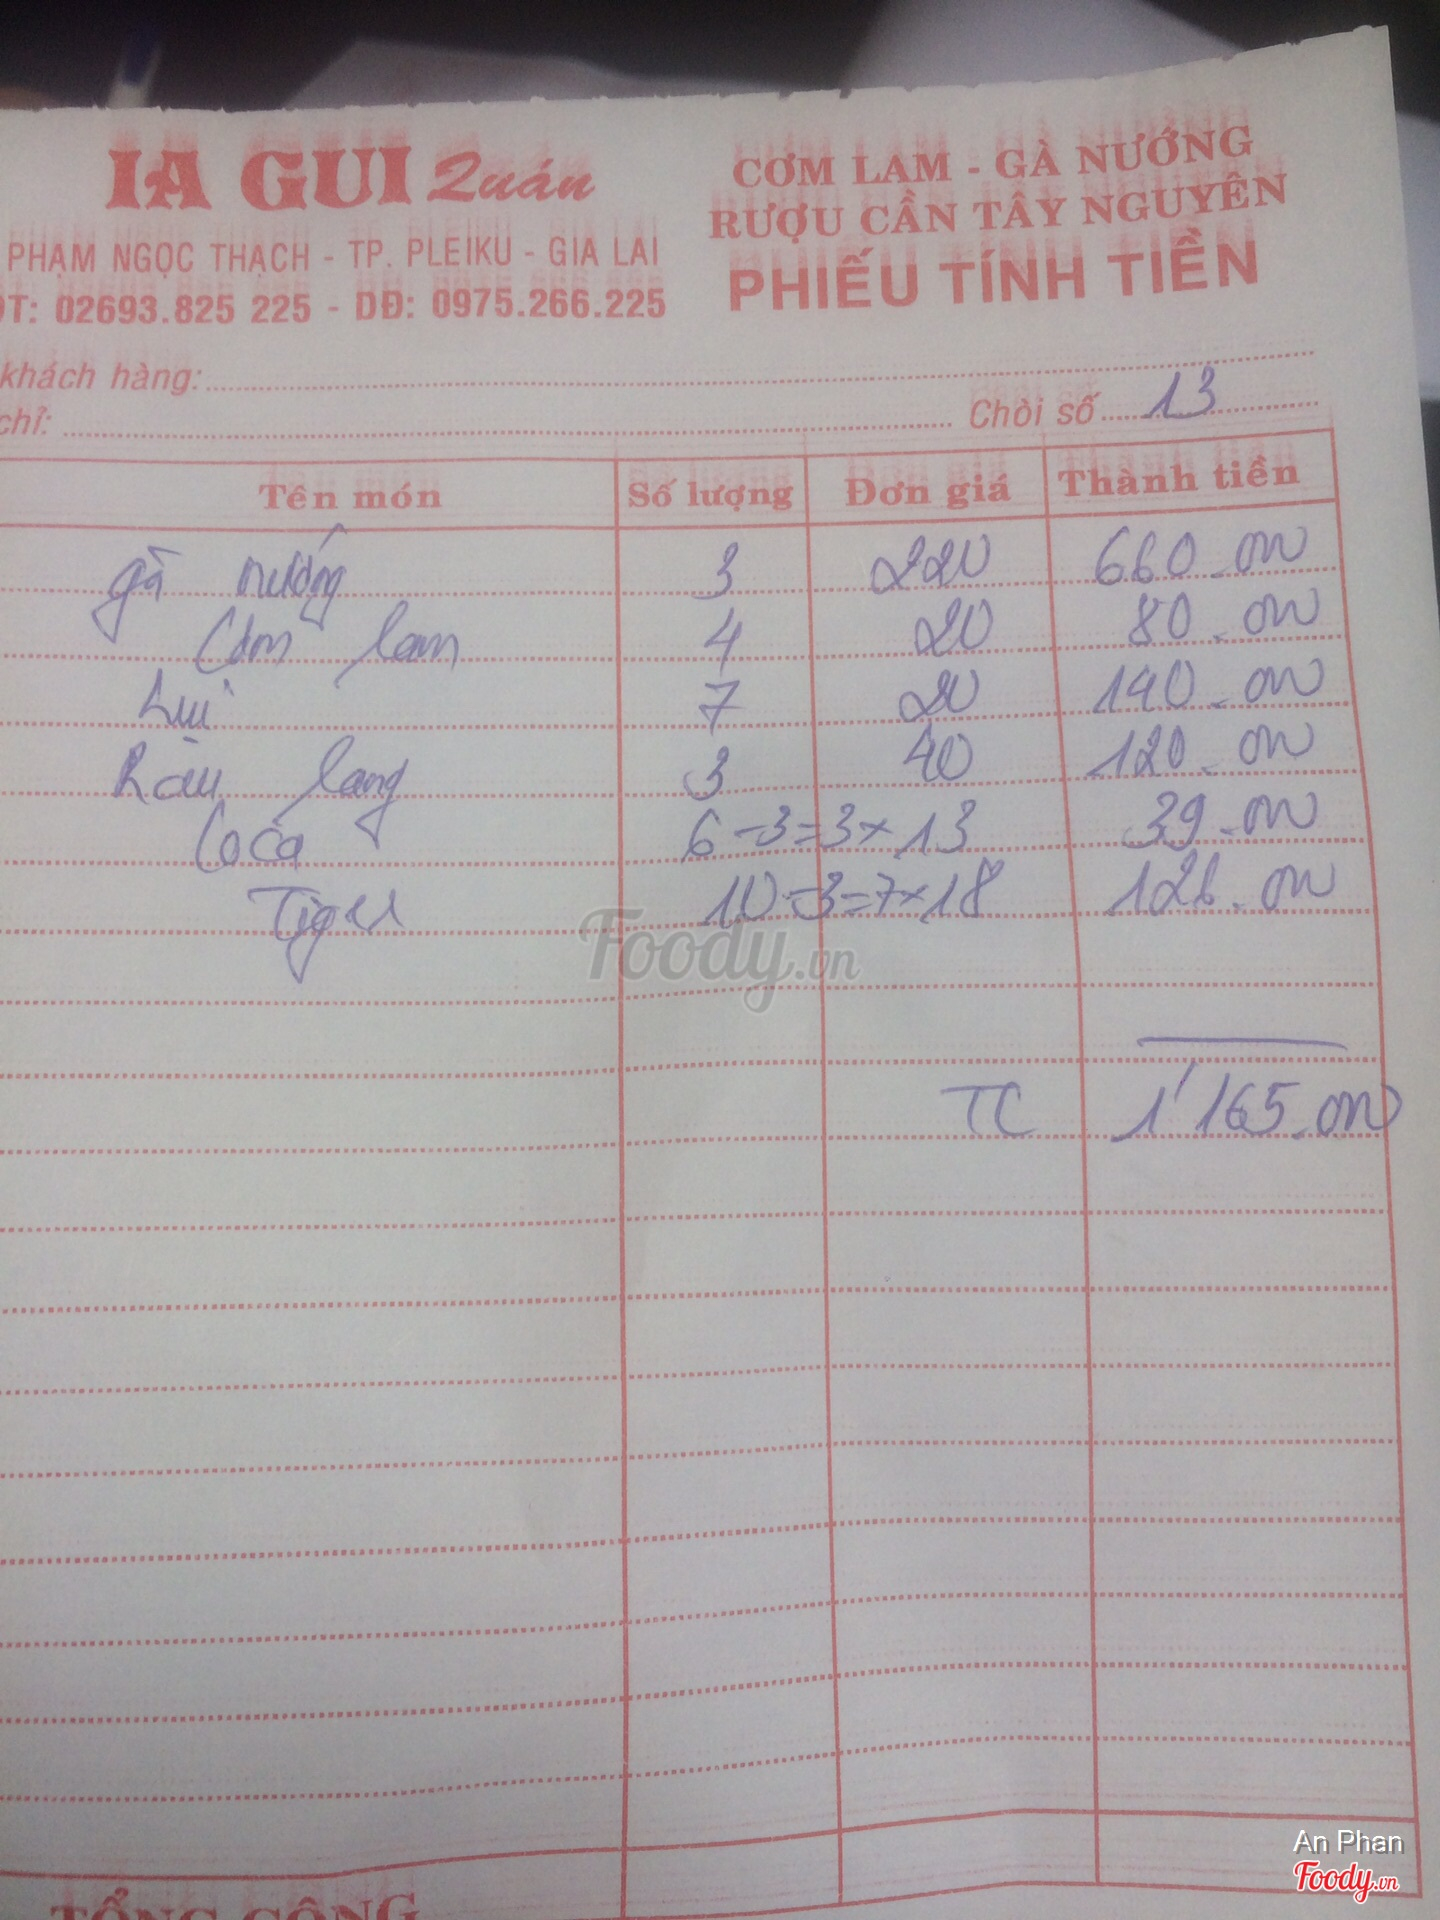 IA GUI Quán
PHẠM NGỌC THẠCH - TP. PLEIKU - GIA LAI
ĐT: 02693.825 225 - DĐ: 0975.266.225
CƠM LAM - GÀ NƯỚNG
RƯỢU CẦN TÂY NGUYÊN
PHIẾU TÍNH TIỀN
khách hàng:
chỉ: Chòi số 13
Tên món Số lượng Đơn giá Thành tiền
gà nướng 3 220 660.000
Cơm lam 4 20 80.000
Lụi 7 20 140.000
Rau lang 3 40 120.000
Coca 6-3=3×13 39.000
Tiger 10-3=7×18 126.000
Foody.vn
TC 1'165.000
TỔNG CỘNG
An Phan
Foody.vn